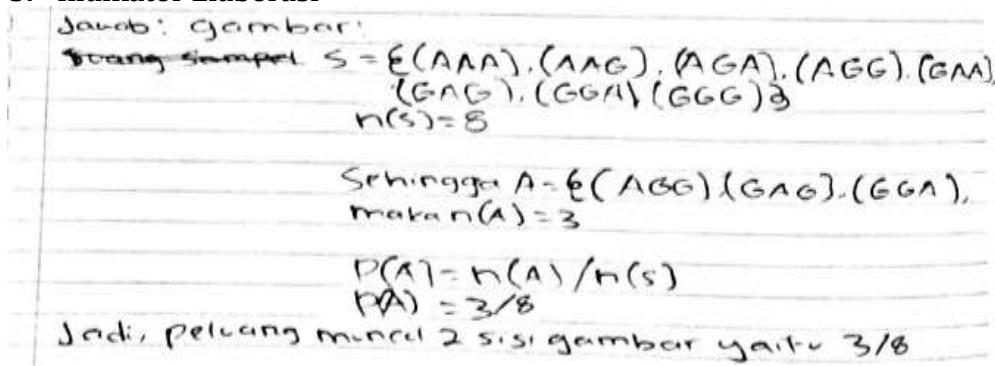 Jawab: gambar:
Ruang sampel S = {(AAA), (AAG), (AGA), (AGG), (GAA),
(GAG), (GGA), (GGG)}
n(S) = 8
Sehingga A = {(AGG) (GAG), (GGA),
maka n(A) = 3
P(A) = n(A) / n(S)
P(A) = 3/8
Jadi, peluang muncul 2 sisi gambar yaitu 3/8